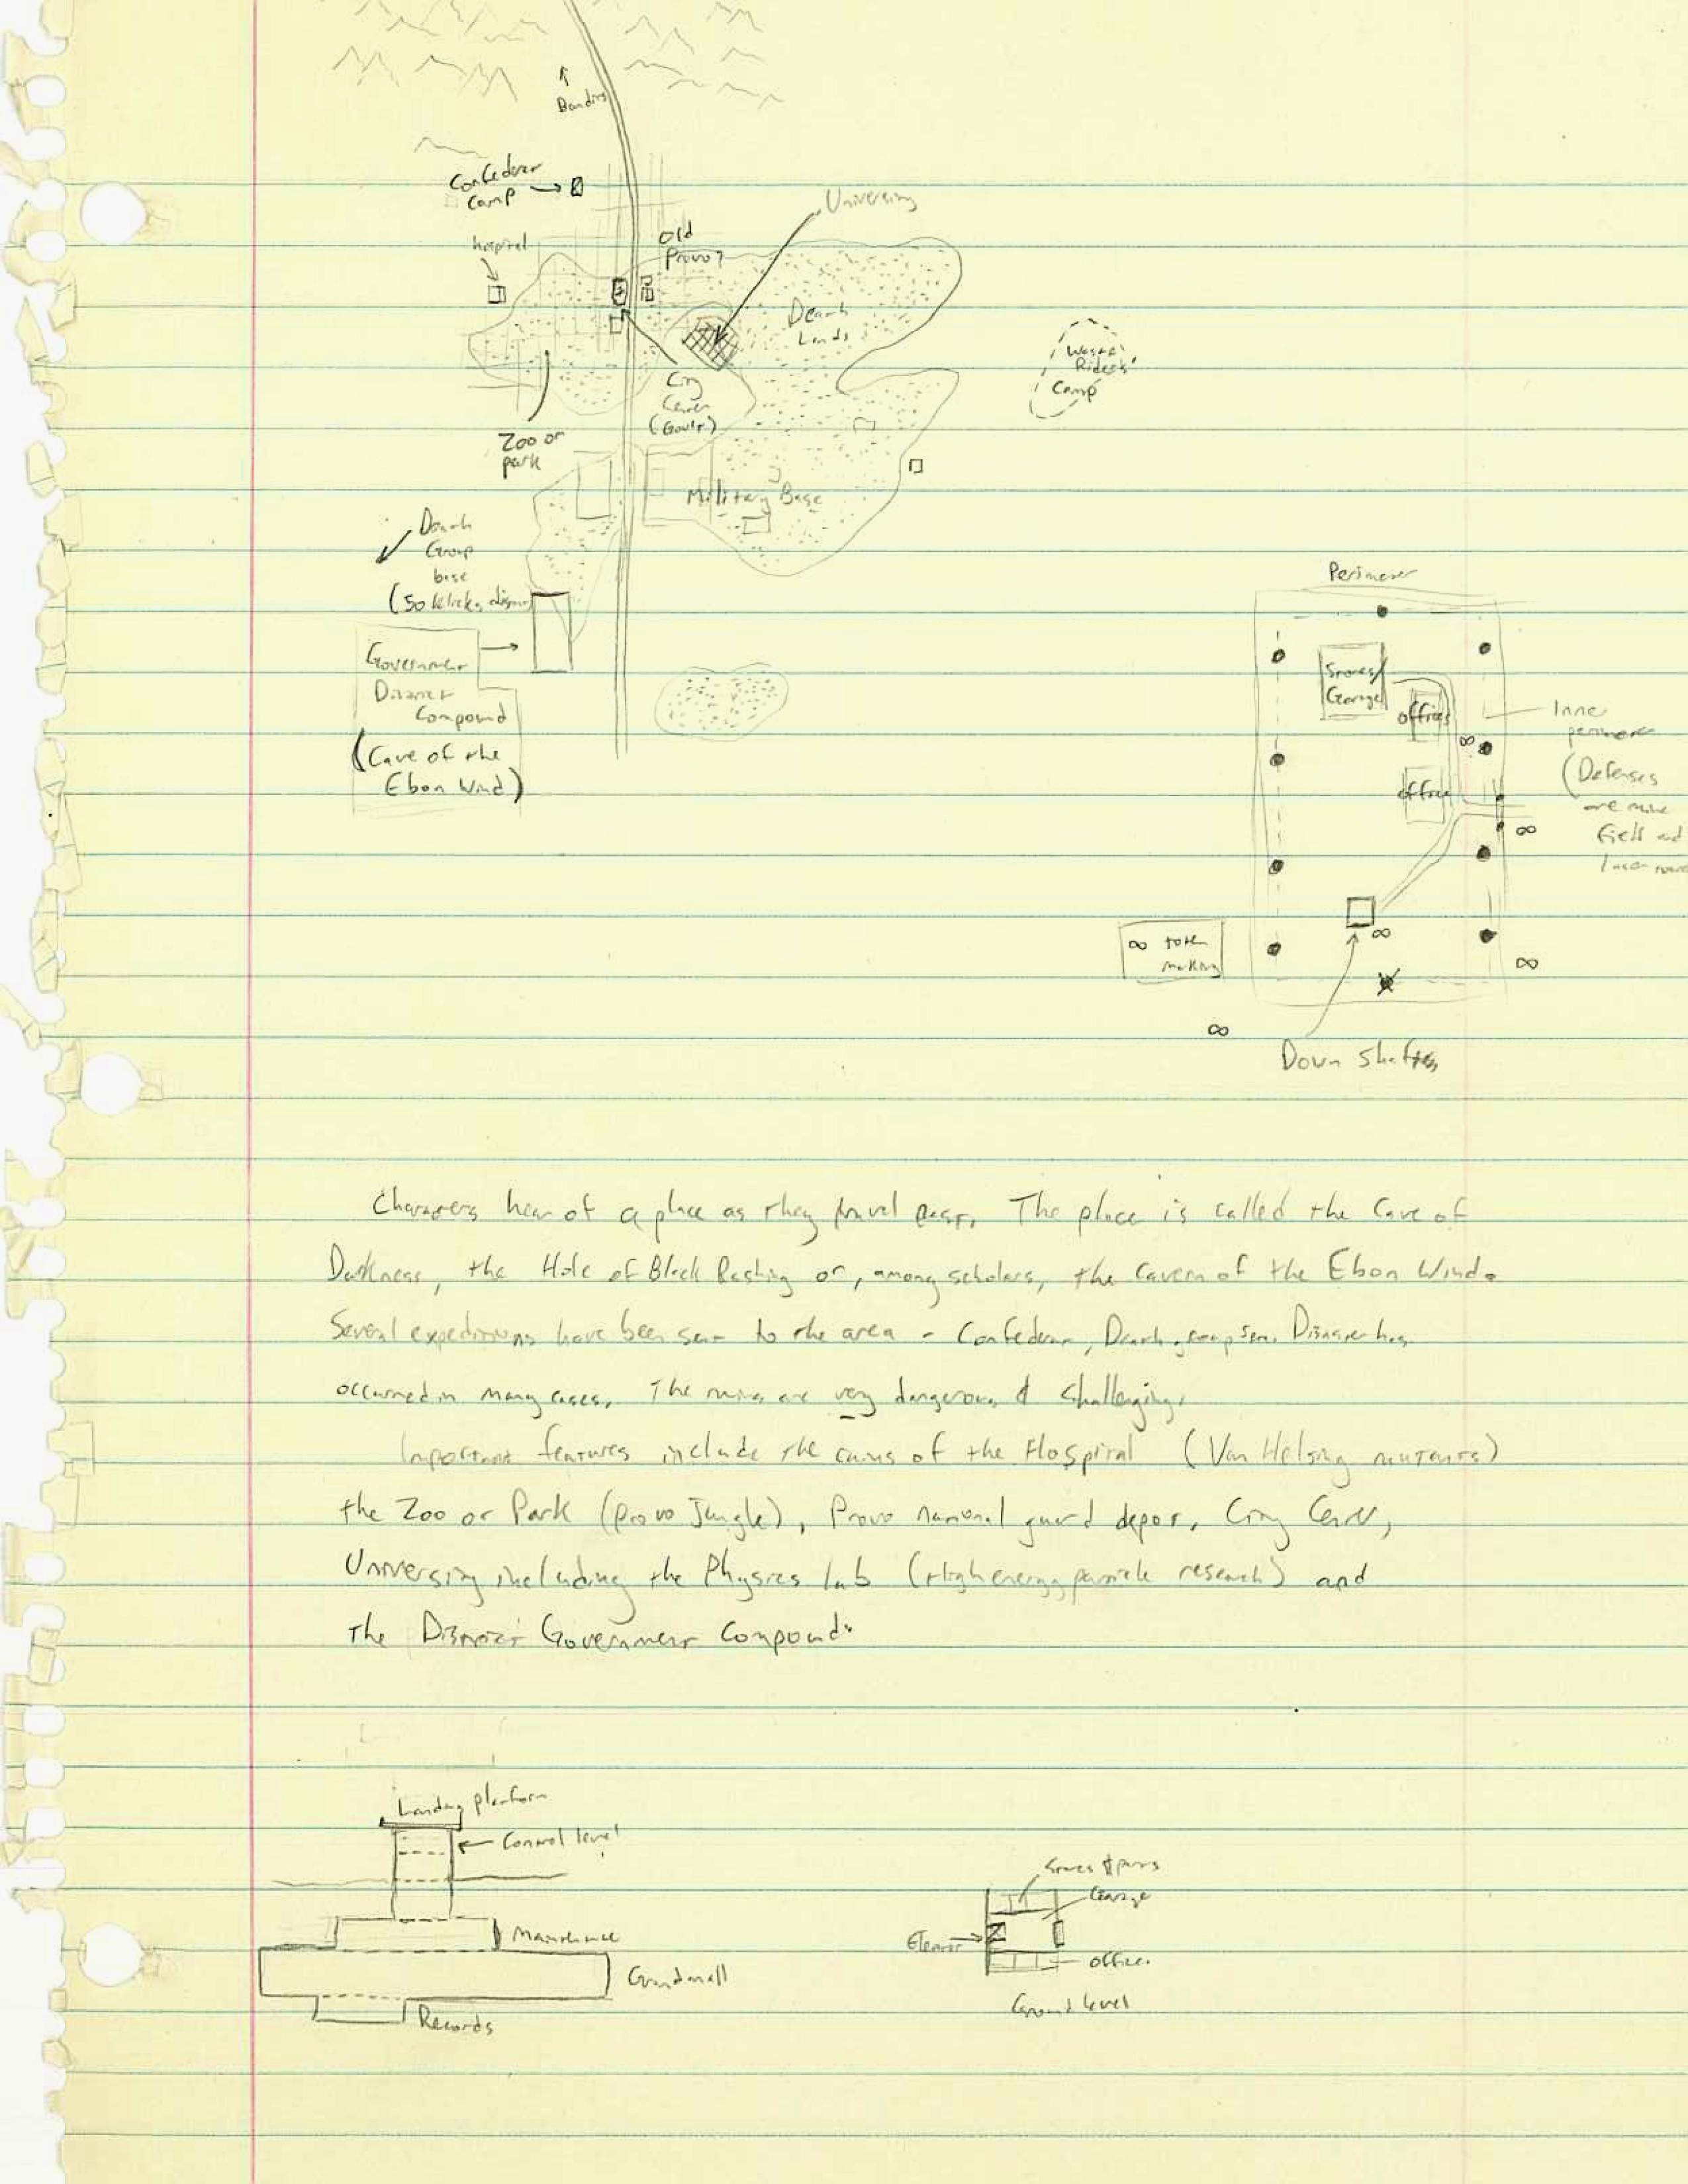 Bandits
Confederat
Camp
University
hospital
Old
Provo?
Death
Lands
Waste
Riders'
Camp
City
Center
(Govt.)
Zoo or
park
Military Base
Death
Group
base
(50 klicks
Perimeter
Government
District
Compound
(Cave of the
Ebon Wind)
Stores/
Garage
offices
Inner
perimeter
(Defenses
are mine
field and
office
∞ totem
marking
Down shafts
Characters hear of a place as they travel east. The place is called the Cave of
Darkness, the Hole of Black Rushing or, among scholars, the cavern of the Ebon Wind.
Several expeditions have been sent to the area - Confederat, Death group sent. Disaster has
occurred in many cases. The ruins are very dangerous & challenging.
Important features include the ruins of the Hospital (Van Helsing mutants)
the Zoo or Park (Provo Jungle), Provo national guard depot, City Center,
University including the Physics lab (High energy particle research) and
the District Government Compound.
Landing platform
Control level
Stores & parts
Garage
Maintenance
Elevator
office
Grandmall
Ground level
Records